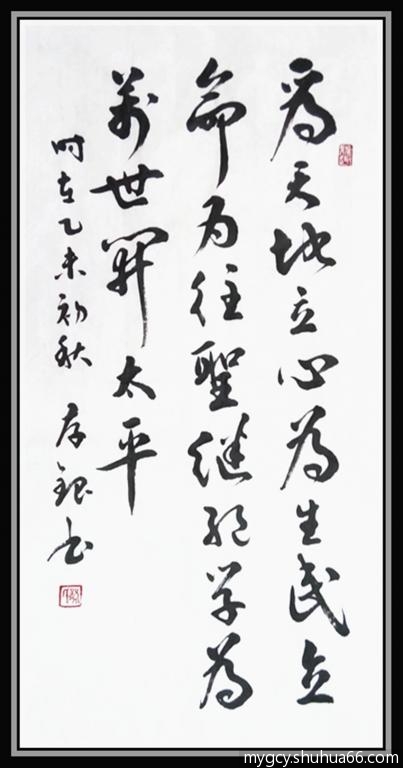 為天地立心為生民立
命为往聖继絕学為
萬世開太平
时在乙未初秋 存銀书
mygcy.shuhua66.com